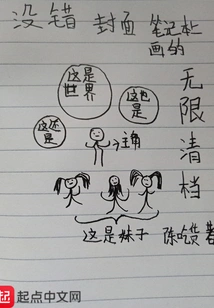 没错 封面 笔记本画的
无限清档
这是世界
这也是
这还是
主角
这是妹子
陈吃货 著
起点中文网